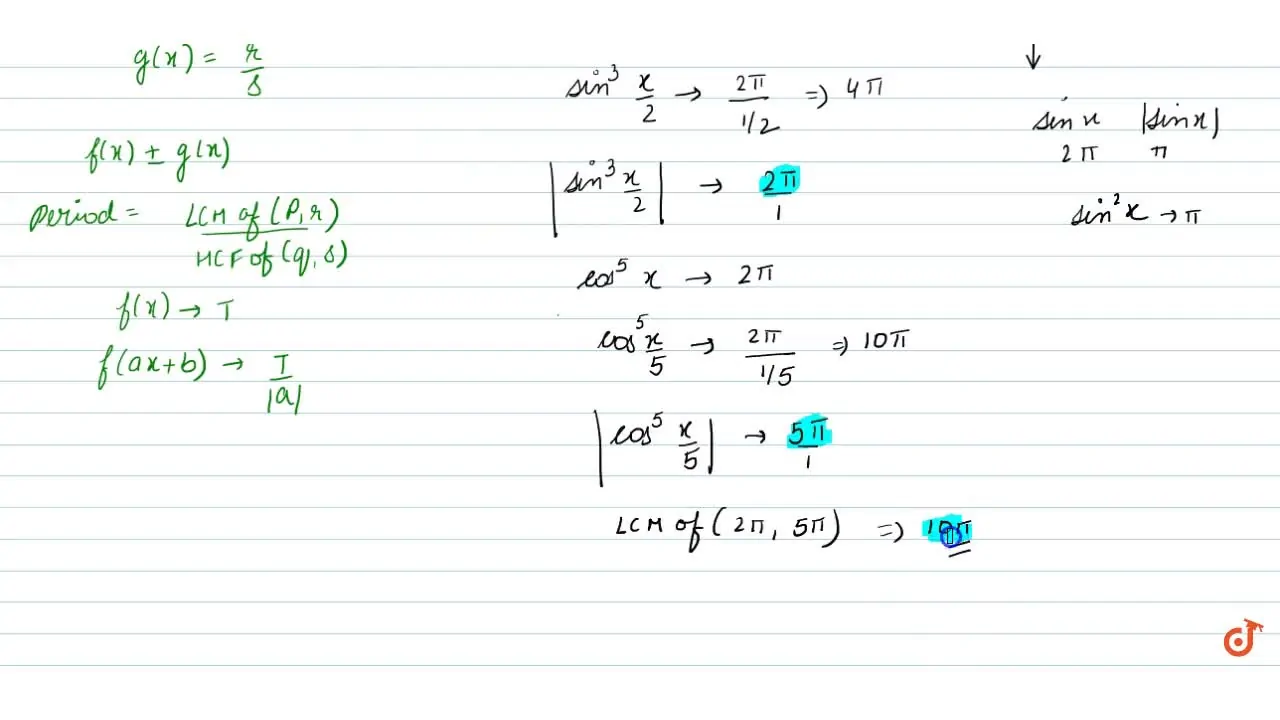 g(x) = r/s
f(x) ± g(x)
Period = LCM of (P, r) / HCF of (q, s)
f(x) → T
f(ax+b) → T/|a|
sin³ x/2 → 2π/1/2 => 4π
|sin³ x/2| → 2π/1
cos⁵ x → 2π
cos⁵ x/5 → 2π/1/5 => 10π
|cos⁵ x/5| → 5π/1
LCM of (2π, 5π) => 10π
↓
sin x |sin x|
2π π
sin² x → π